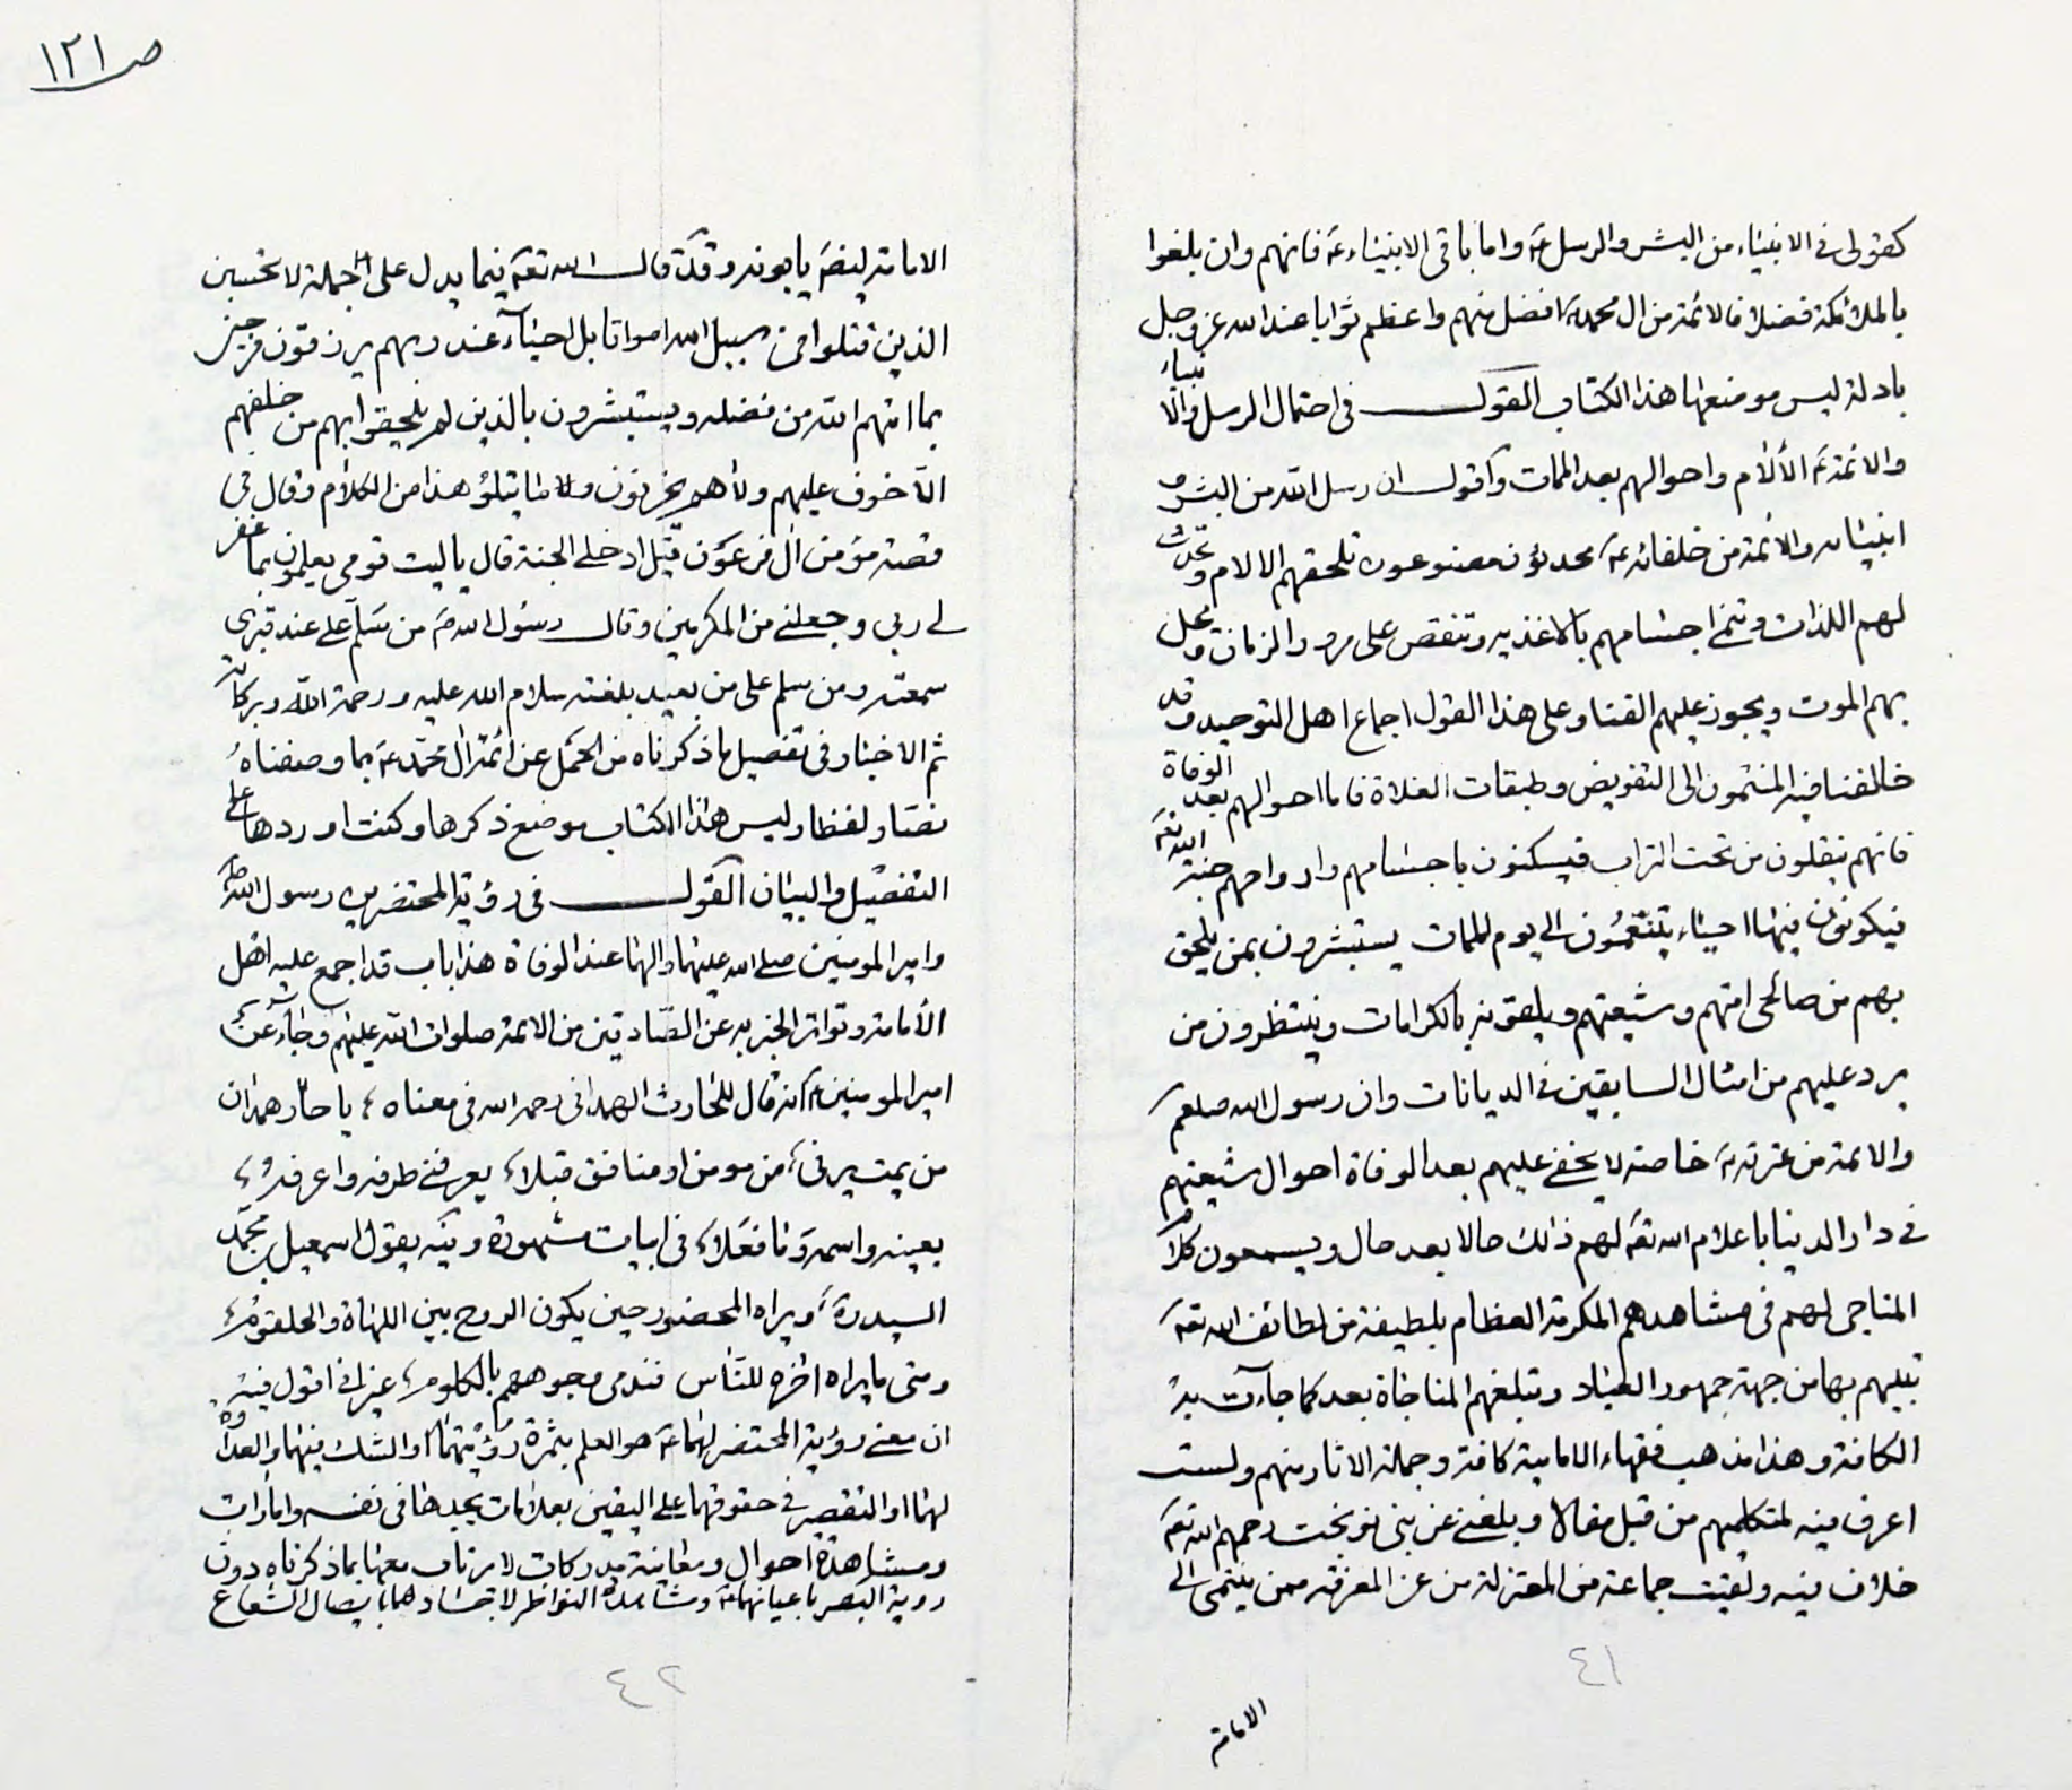 كقولى فى الانبياء من البشر والرسل ع واما باقى الانبياء ع فانهم وان بلغوا
بالملائكة فضلا فالائمة من ال محمد ع افضل منهم واعظم ثوابا عند الله عز وجل
بادلة ليس موضعها هذا الكتاب القول فى احتمال الرسل والانبياء
والائمة ع الألام واحوالهم بعد الممات واقول ان رسل الله من البشر و
انبيائه والائمة من خلفائه ع محدثون مصنوعون تلحقهم الالام وتحدث
لهم اللذات وتنمى اجسامهم بالاغذيه وتنقص على مرور الزمان وتحل
بهم الموت ويجوز عليهم الفنا وعلى هذا القول اجماع اهل التوحيد وقد
خالفنا فيه المنتمون الى التفويض وطبقات الغلاة فاما احوالهم بعد الوفاة
فانهم ينقلون من تحت التراب فيسكنون باجسامهم وارواحهم جنة الله تع
فيكونون فيها احياء يتنعمون الى يوم الممات يستبشرون بمن يلحق
بهم من صالحى امتهم وشيعتهم ويلقونه بالكرامات وينتظرون من
يرد عليهم من امثال السابقين فى الديانات وان رسول الله صلعم
والائمة من عترته ع خاصة لا يخفى عليهم بعد الوفاة احوال شيعتهم
فى دار الدنيا باعلام الله تع لهم ذلك حالا بعد حال ويسمعون كلام
المناجى لهم فى مشاهدهم المكرمة العظام بلطيفة من لطائف الله تع
تبينهم بها من جهة جمهور العباد وتبلغهم المناجاة بعد كما جاءت به
الكافة وهذا مذهب فقهاء الامامية كافة وجملة الاثار منهم ولست
اعرف فيه لمتكلميهم من قبل مقالا وبلغنى عن بنى نوبخت رحمهم الله تع
خلاف فيه ولقيت جماعة من المعتزلة من عن المعرفة ممن ينتمى الى
٤١
الامامة
ص ١٢١
الامامة ليضع يابونه وقد قال الله تع فيما يدل على الجملة لا تحسبن
الذين قتلوا فى سبيل الله امواتا بل احياء عند ربهم يرزقون فرحين
بما اتيهم الله من فضله ويستبشرون بالذين لم يلحقوا بهم من خلفهم
الا خوف عليهم ولا هم يحزنون وما يتلو هذا من الكلام وقال فى
قصة مؤمن ال فرعون قيل ادخل الجنة قال ياليت قومى يعلمون بما غفر
لى ربى وجعلنى من المكرمين وقال رسول الله ص من سلم على عند قبرى
سمعته ومن سلم على من بعيد بلغته سلام الله عليه ورحمة الله وبركاته
ثم الاخبار فى تفصيل ما ذكرناه من الجمل عن ائمة ال محمد ع بما وصفناه
نصا ولفظا وليس هذا الكتاب موضع ذكرها وكنت اوردها على
التفصيل والبيان القول فى رؤية المحتضرين رسول الله ص
وامير المومنين صلى الله عليهما والهما عند الوفاة هذا باب قد اجمع عليه اهل
الامامة وتواتر الخبر به عن الصادقين من الائمة صلوات الله عليهم وجاء عن
امير المومنين ع انه قال للحارث الهمدانى رحمه الله فى معناه يا حار همدان
من يمت يرنى من مومن او منافق قبلا يعرفنى طرفه واعرفه
بعينه واسمه وما فعلا فى ابيات مشهورة وفيه يقول اسمعيل بن محمد
السيد ره ويراه المحضور حين يكون الروح بين اللهاة والحلقوم
ومتى ما يراه اخرج للناس فتدمى وجوههم بالكلوم غير انى اقول فيه
ان معنى رؤية المحتضر لهما ع هو العلم بثمرة رؤيتهما او الشك فيهما والعداوة
لهما او التقصير فى حقوقهما على اليقين بعلامات يجدها فى نفسه وامارات
ومشاهدة احوال ومعاينة مدركات لا يرتاب معها بما ذكرناه دون
روية البصر باعيانهما ع ومشاهدة النواظر لاجسادهما باتصال الشعاع
٤٢